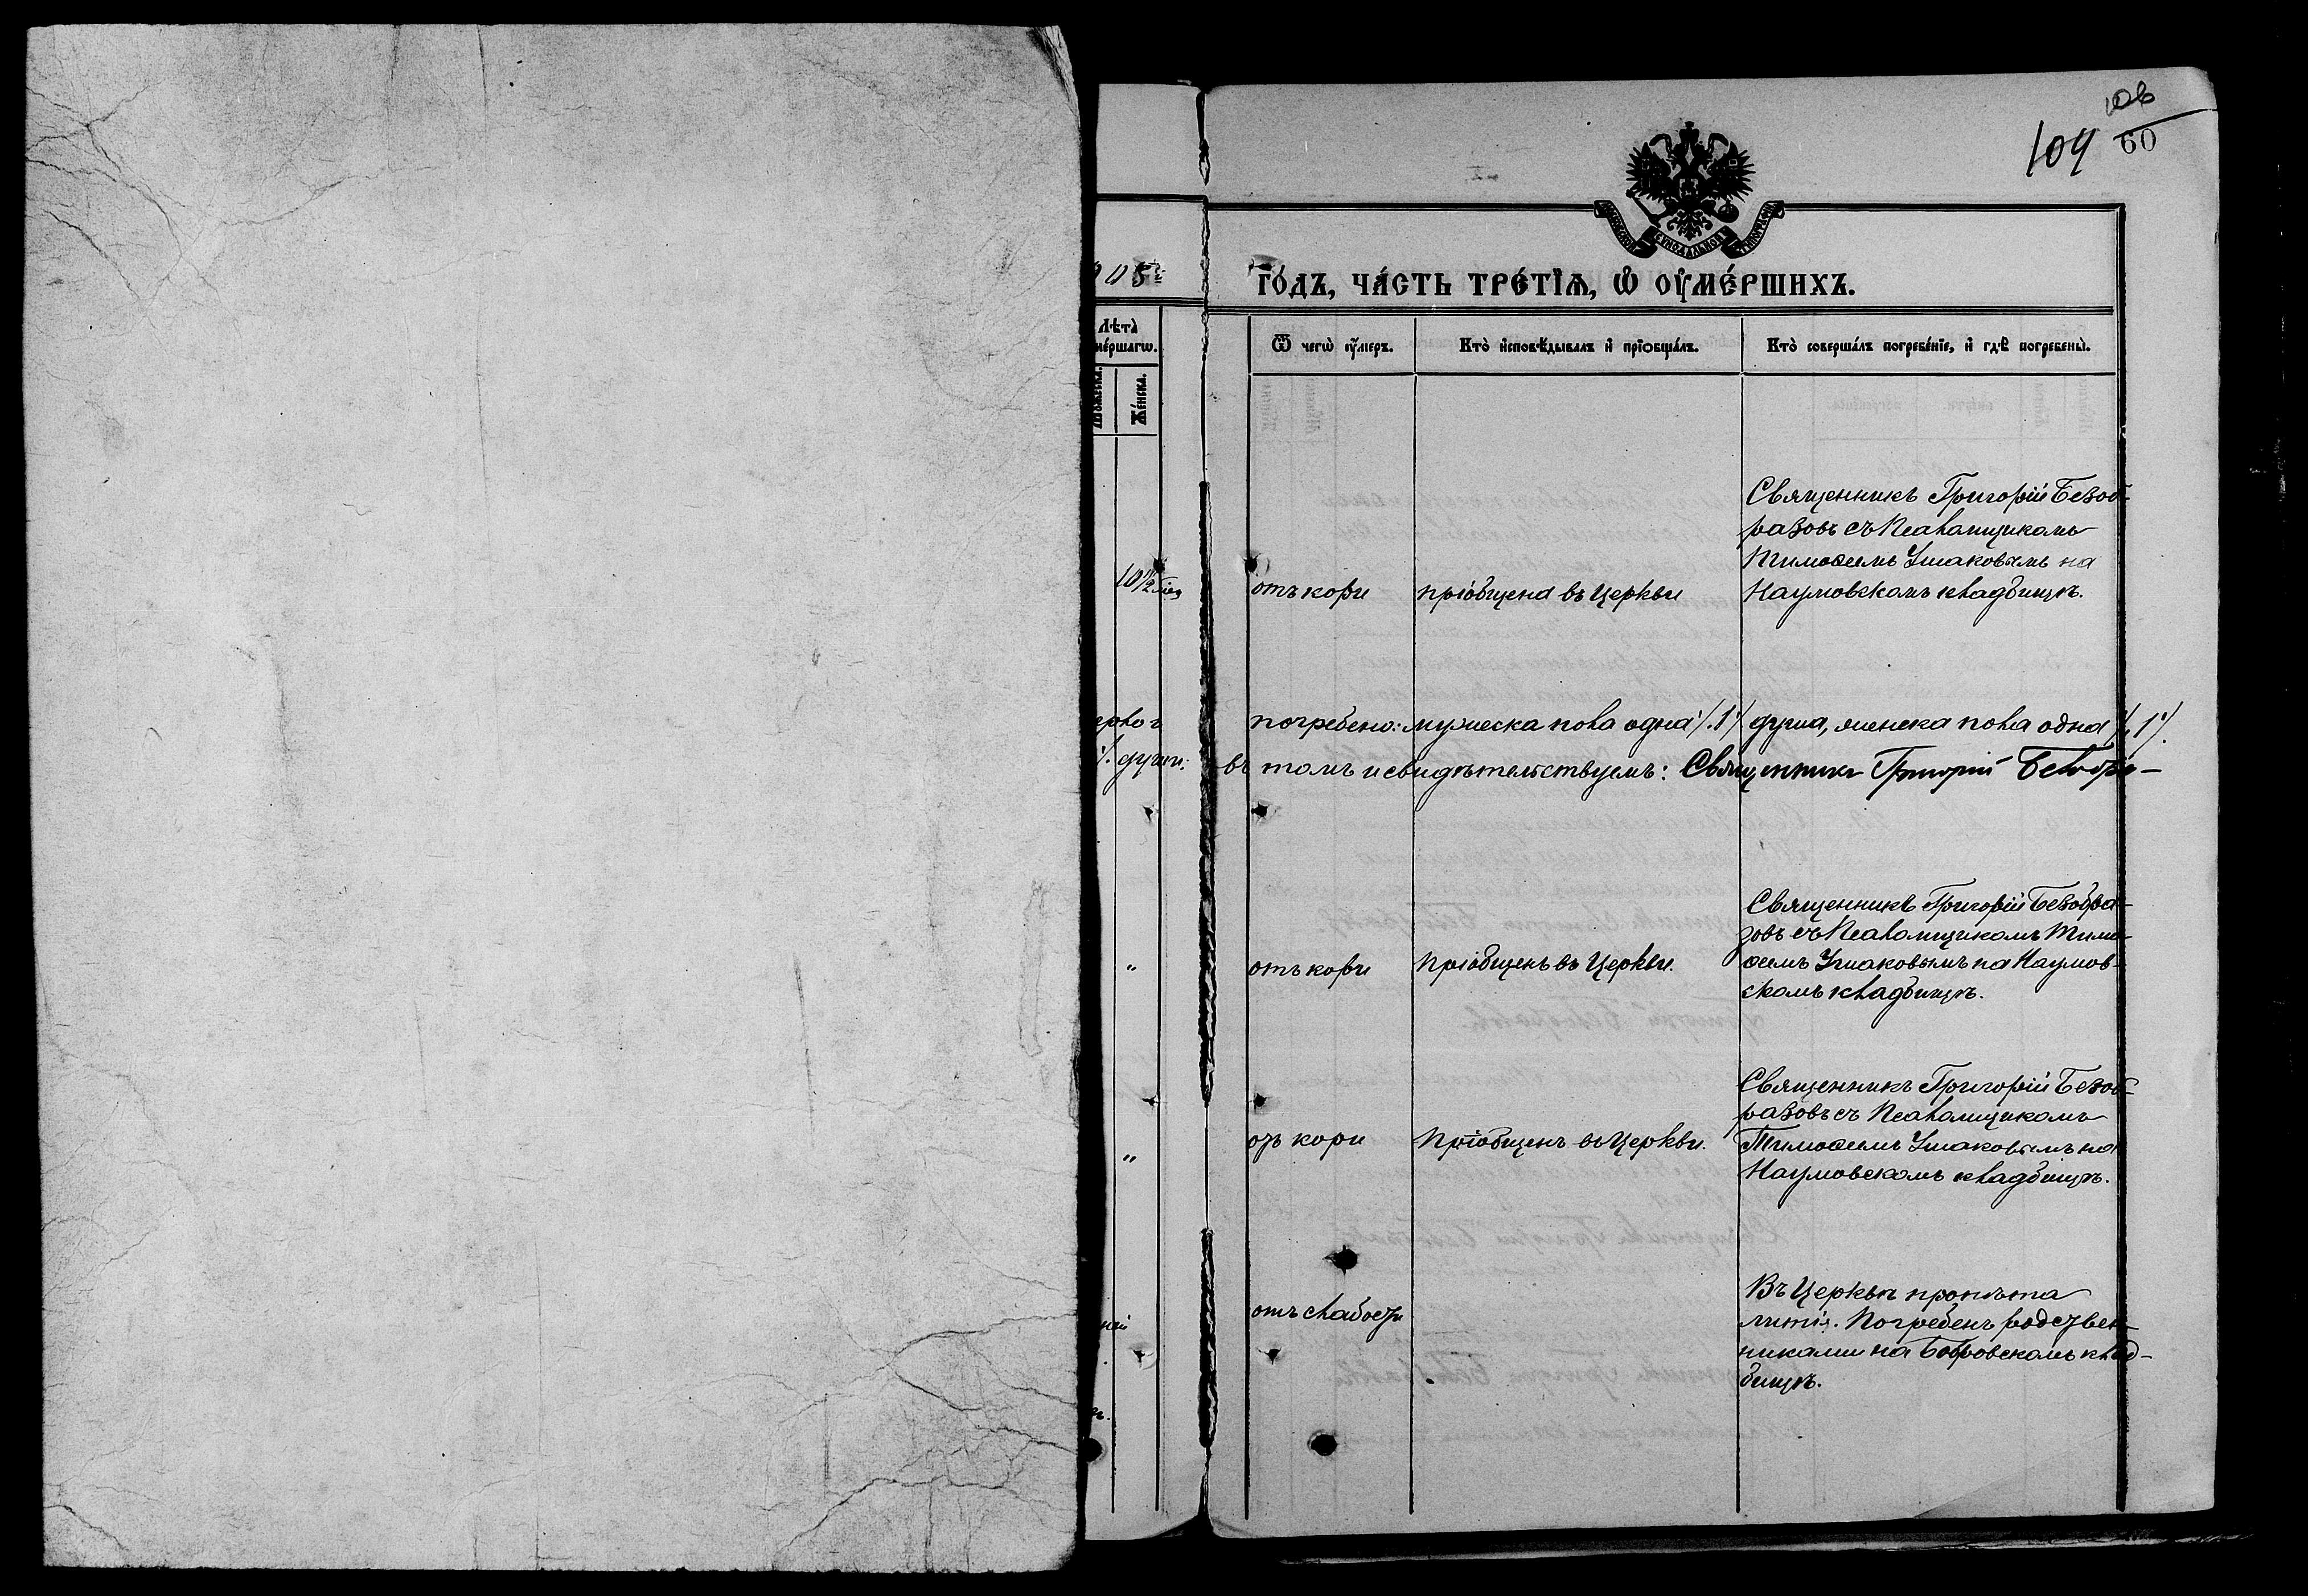 106
60
104
МОСКОВСКОЙ СѴНОДАЛЬНОЙ ТИПОГРАФІИ
905
го́дъ, ча́сть тре́тїѧ, ѡ҆ ᲂу҆ме́ршихъ.
Лѣта̀
ме́ршагѡ.
Же́нска.
Ѿ чегѡ̀ ᲂу҆́меръ.
Кто̀ и҆сповѣ́дывалъ и҆ прїѻбща́лъ.
Кто̀ соверша́лъ погребе́нїе, и҆ гдѣ̀ погребены̀.
10
отъ кори
пріобщена въ Церкви
Священникъ Григорій Безоб-
разовъ съ Псаломщикомъ
Тимоѳеемъ Ушаковымъ на
Наумовскомъ кладбищѣ.
погребено: мужеска пола одна /.1./ душа, женска пола одна /.1./.
души:
въ томъ и свидѣтельствуемъ: Священникъ Григорій Безобра-
"
отъ кори
Пріобщенъ въ Церкви.
Священникъ Григорій Безобра-
зовъ съ Псаломщикомъ Тимо-
ѳеемъ Ушаковымъ на Наумов-
скомъ кладбищѣ.
"
отъ кори
Пріобщенъ въ Церкви.
Священникъ Григорій Безоб-
разовъ съ Псаломщикомъ
Тимоѳеемъ Ушаковымъ на
Наумовскомъ кладбищѣ.
отъ слабости
Въ Церкви пропѣта
литія. Погребенъ родствен-
никами на Бобровскомъ клад-
бищѣ.